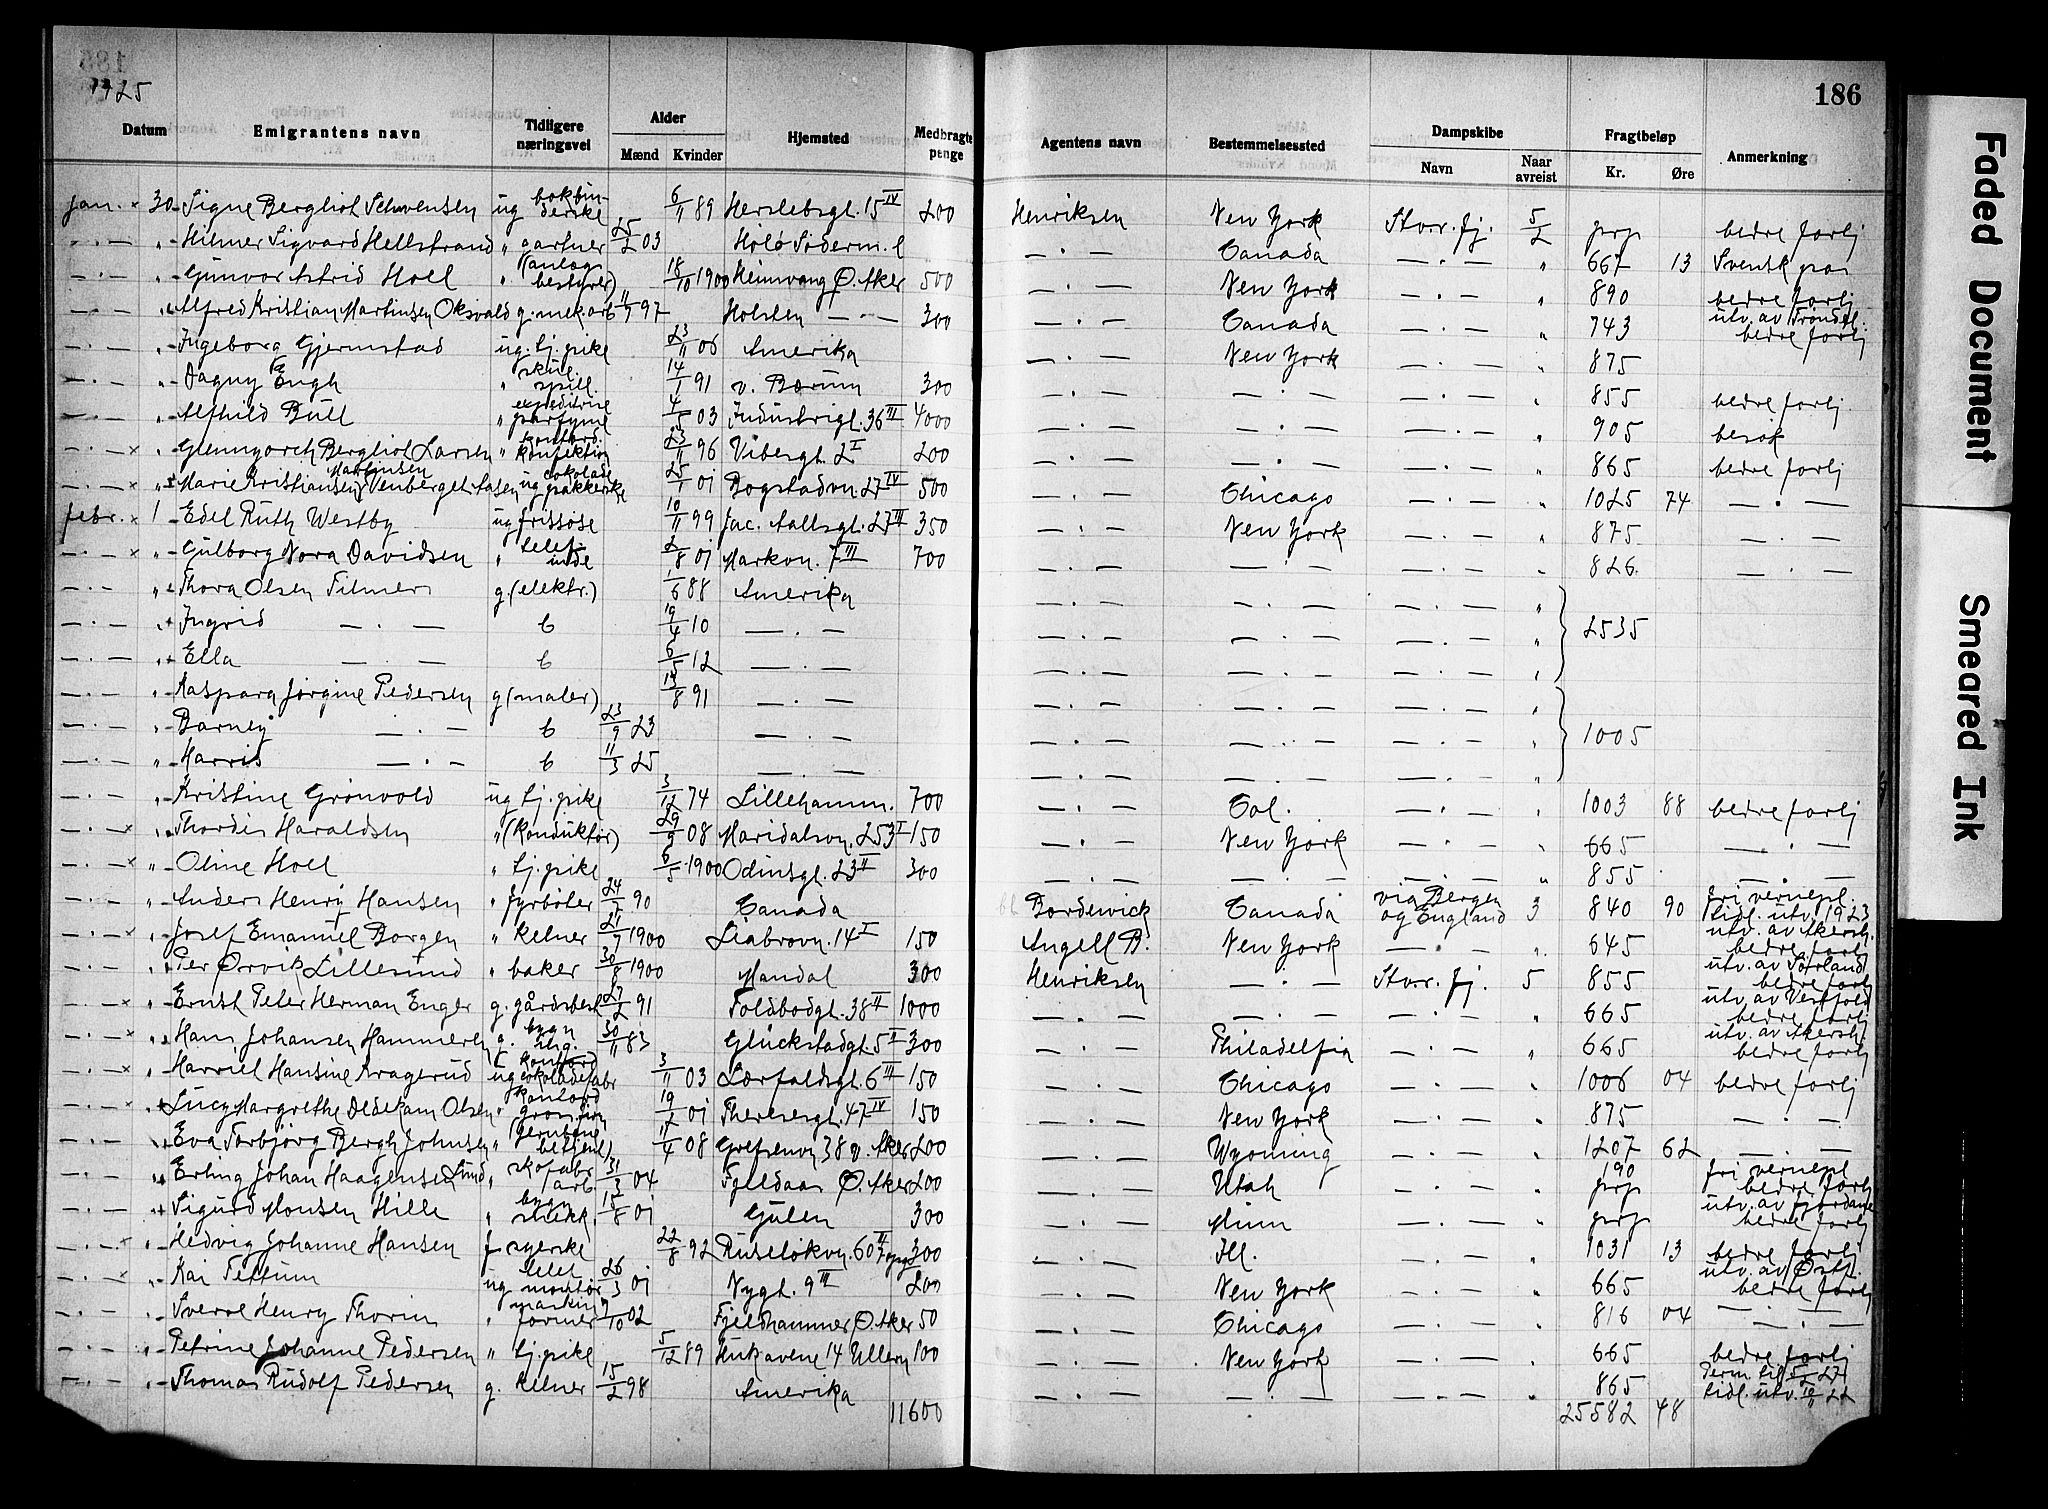 186
1925
Datum Emigrantens navn Tidligere næringsvei Alder Mænd Kvinder Hjemsted Medbragte penge Agentens navn Bestemmelsessted Dampskibe Navn Naar avreist Fragtbeløp Kr. Øre Anmerkning
Jan. × 30 Signe Bergliot Schvensen ug bokbinderske 6/11 89 Herslebsgt. 15 IV 200 Henriksen New York Stavr. fj. 5/2 prp bedre forhj
— . — „ Hilmer Sigvard Hellstrand „ gartner 25/2 03 Hölö Söderm. l — . — Canada — . — „ 667 13 Svensk pas
— . — „ Gunvor Astrid Holl „ bestyrer) 18/10 1900 Heimvang Ø. Aker 500 — . — New York — . — „ 890 bedre forhj
„ Alfred Kristian Martinsen Oksvold g. mek. arb 11/9 97 Holsten — . — 300 — . — Canada — . — „ 743 utv. av Trøndel. bedre forhj
— . — „ Ingeborg Gjermstad ug. tj. pike 23/11 06 Amerika — . — New York — . — „ 875
— . — „ Dagny Engh „ skue spill. 14/1 91 v. Bærum 300 — . — — . — — . — „ 855 bedre forhj.
— . — „ Alfhild Bull „ expeditrise parfyme 4/5 03 Industrigt. 36 III 4000 — . — — . — — . — „ 905 besøk
— . — × „ Bergliot Larsen „ konfektion 23/11 96 Vibesgt. 2 I 200 — . — — . — — . — „ 865 bedre forhj
— . — × „ Marie Kristiansen Martinsen ug cokolade pakkerske 25/1 01 Bogstadvn. 27 IV 500 — . — Chicago — . — „ 1025 74 — . —
Febr. × 1 Edel Ruth Westby ug frissøse 10/11 99 Jac. Aallsgt. 27 III 350 — . — New York — . — „ 875 — . —
— . — × „ Gulborg Nora Davidsen „ telef. inde 2/8 01 Markvn. 7 III 700 — . — — . — — . — „ 826. — . —
— . — „ Thora Olsen Filmer g. (elektr.) 1/6 88 Amerika — . — — . — — . — „
— . — „ Ingrid — . — b 19/4 10 — . — — . — — . — — . — „ 2535
— . — „ Ella — . — b 6/5 12 — . — — . — — . — — . — „
— . — „ Kaspara Jørgine Pedersen g (maler) 13/8 91 — . — — . — — . — — . — „
— . — „ Barney — . — b 23/9 23 — . — — . — — . — — . — „ 1005
— . — „ Harris — . — b 11/3 25 — . — — . — — . — — . — „
— . — „ Kristine Grønvold ug tj. pike 3/12 74 Lillehamm. 700 — . — Col. — . — „ 1003 88 bedre forhj
— . — × „ Thordis Haraldsen „ (konduktør) 29/9 08 Maridalsvn. 253 I 150 — . — New York — . — „ 665 — . —
— . — × „ Oline Holl „ tj. pike 6/5 1900 Odinsgt. 23 II 300 — . — — . — — . — „ 855 — . —
— . — „ Anders Henry Hansen „ fyrbøter 24/2 90 Canada Bordewick Canada via Bergen og England 3 840 90 fri vernepl. tidl. utv. 1923
— . — × „ Josef Emanuel Borgen „ kelner 21/7 1900 Liabrovn. 14 I 150 Angell B. New York — . — „ 645 utv. av Akersh. bedre forhj
— . — „ Per Ørvik Lillesund „ baker 30/8 1900 Mandal 300 Henriksen — . — Stavr. fj. 5 855 utv. av Sørland bedre forhj
— . — × „ Ernst Peter Herman Enger g. gårdsbest 27/2 91 Toldbodgt. 38 II 1000 — . — — . — — . — „ 665 utv. av Vestfold bedre forhj
— . — × „ Hans Johansen Hammeren g. bygn. 30/11 83 Glückstadgt. 5 II 300 — . — Philadelfia — . — „ 665 utv. av Akersh. bedre forhj
— . — × „ Harriet Hansine Kragerud ug cokoladefabr 3/11 03 Lørfaldsgt. 6 III 150 — . — Chicago — . — „ 1006 04 bedre forhj
— . — „ Lucy Margrethe Oldekam Olsen „ kontord. 19/2 01 Theresesgt. 47 IV 150 — . — New York — . — „ 875 — . —
— . — „ Eva Torbjørg Bergh Johnsen „ betjent) 11/4 08 Grefsenvn 38 v. Aker 200 — . — Wyoming — . — „ 1207 62 — . —
— . — „ Erling Johan Haagensen Lund „ skofabr arb 31/3 04 Ø. Aker 200 — . — Utah — . — „ 190 prp fri vernepl bedre forhj
— . — „ Sigurd Monsen Hille „ bygn snekk. 15/8 01 Gulen 300 — . — Minn — . — „ prp utv. av Fjordane bedre forhj
— . — × „ Hedvig Johanne Hansen f syerske 22/8 92 Ruseløkvn. 60 II opg 300 — . — Ill. — . — „ 1031 13 bedre forhj
— . — × „ Kai Teftum ug telef. montør 26/3 01 Nygt. 9 III 200 — . — New York — . — „ 665 utv. av Østl. bedre forhj
— . — „ Sverre Henry Thorin „ maskin former 10 02 Fjeldhammer Ø. Aker 50 — . — Chicago — . — „ 816 04 — . —
— . — „ Petrine Johanne Pedersen „ tj. pike 5/12 89 Hukavene 14 Ullern 100 — . — New York — . — „ 665 bedre forhj
— . — „ Thomas Rudolf Pedersen g. kelner 15/2 98 Amerika — . — — . — — . — „ 865 Perm. til 5/2 27 tidl. utv. 10/11 22
11600 25582 48
Faded Document
Smeared Ink